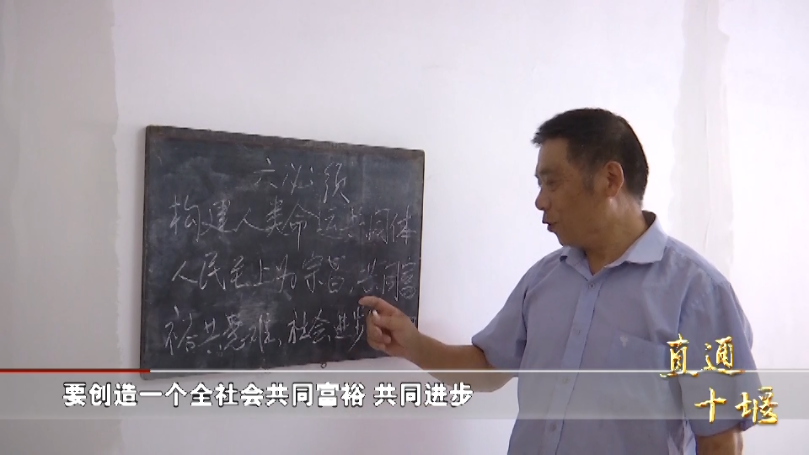 六必须
构建人类命运共同体
人民至上为宗旨,共同富
裕共患难,社会进步
要创造一个全社会共同富裕 共同进步
直通
十堰